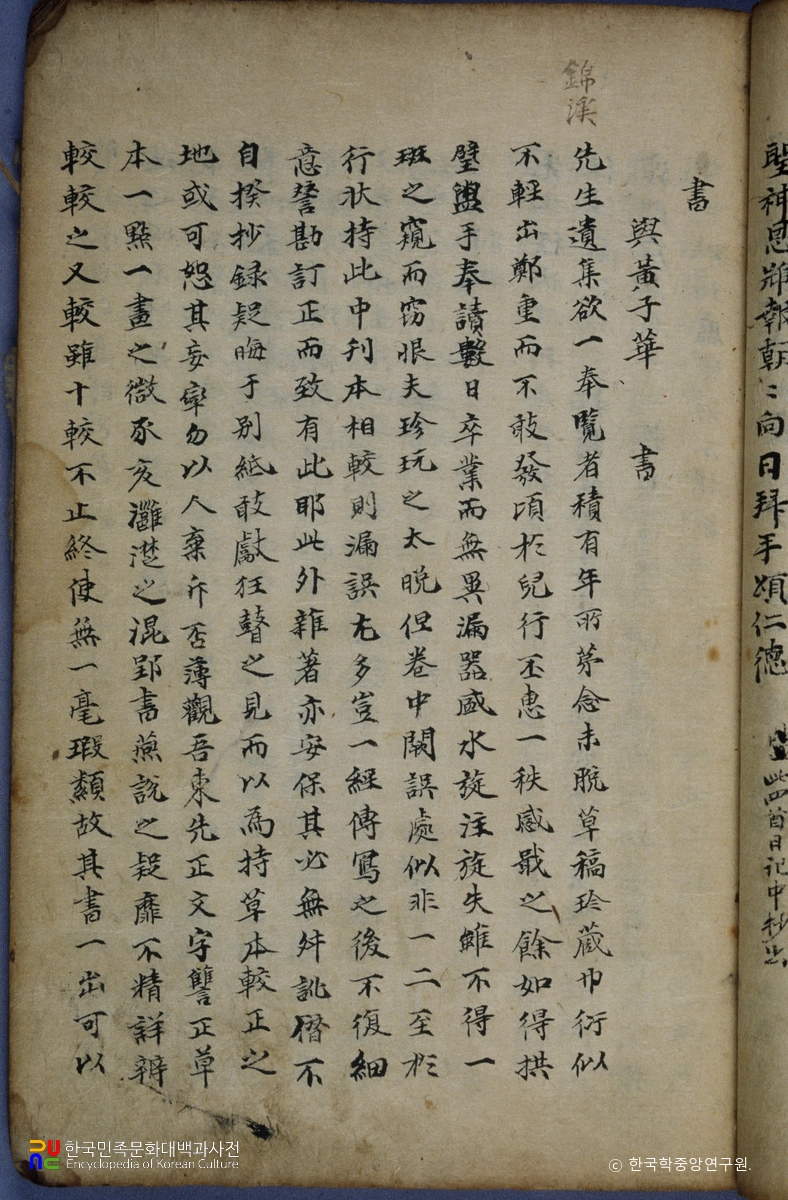 聖神恩𫑡報朝〻向日拜手頌仁德 此四首日記中抄出
書
與黃子華 書
錦溪
先生遺集欲一奉覽者積有年所茅念未脫草稿珍藏巾衍似
不輕出鄭重而不敢發頃於兒行丕惠一秩感戢之餘如得拱
璧盥手奉讀數日卒業而無異漏器盛水旋注旋失雖不得一
斑之窺而窃恨夫珍玩之太晩但卷中闕誤處似非一二至於
行狀持此中刊本相較則漏誤尤多豈一經傳寫之後不復細
意讐勘訂正而致有此耶此外雜著亦安保其必無舛訛僭不
自揆抄録疑晦于別紙敢獻狂瞽之見而以爲持草本較正之
地或可恕其妄率勿以人棄斥否薄觀吾東先正文字讐正草
本一點一畫之微豕亥灘濋之混郢書燕說之疑靡不精詳辨
較較之又較雖十較不止終使無一毫瑕纇故其書一出可以
한국민족문화대백과사전
Encyclopedia of Korean Culture
© 한국학중앙연구원.